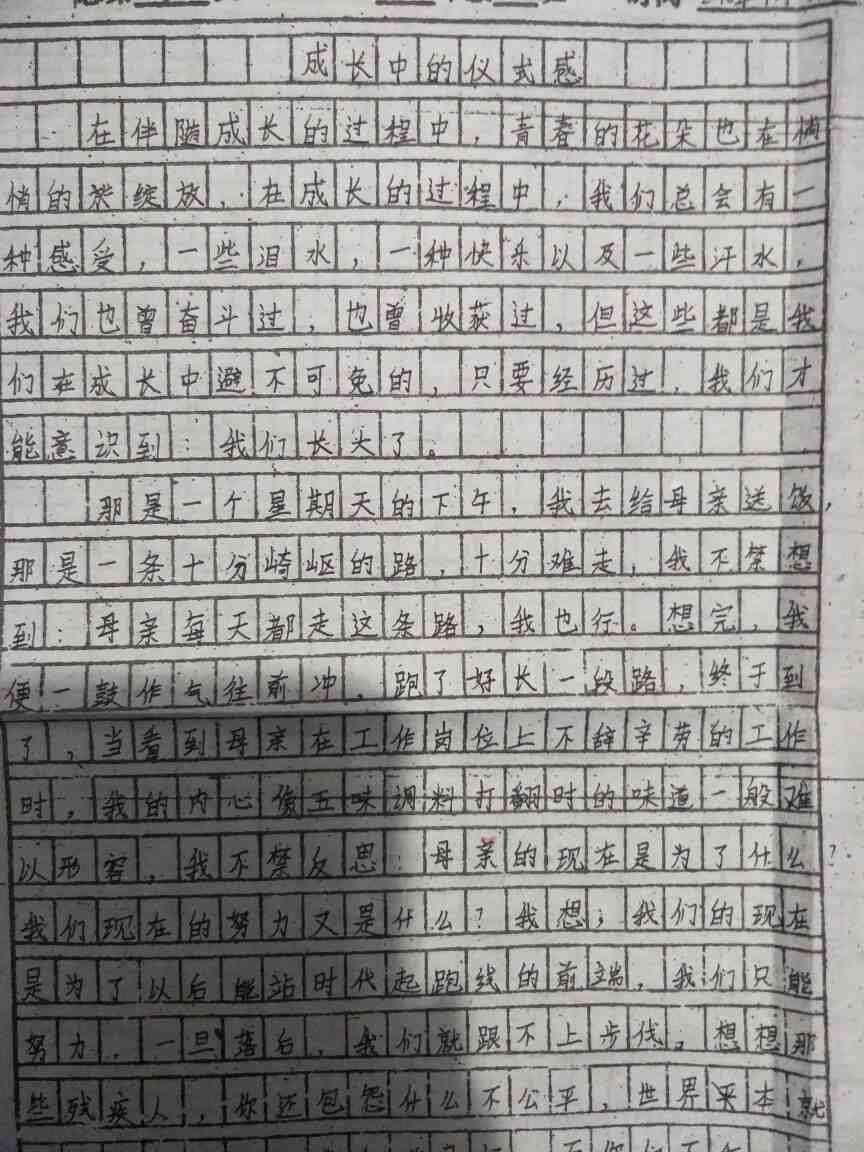 成长中的仪式感
在伴随成长的过程中，青春的花朵也在悄
悄的绽放，在成长的过程中，我们总会有一
种感受，一些泪水，一种快乐以及一些汗水，
我们也曾奋斗过，也曾收获过，但这些都是我
们在成长中避不可免的，只要经历过，我们才
能意识到：我们长大了。
那是一个星期天的下午，我去给母亲送饭，
那是一条十分崎岖的路，十分难走，我不禁想
到：母亲每天都走这条路，我也行。想完，我
便一鼓作气往前冲，跑了好长一段路，终于到
了，当看到母亲在工作岗位上不辞辛劳的工作
时，我的内心像五味调料打翻时的味道一般难
以形容，我不禁反思：母亲的现在是为了什么？
我们现在的努力又是什么？我想；我们的现在
是为了以后能站时代起跑线的前端，我们只能
努力，一旦落后，我们就跟不上步伐。想想那
些残疾人，你还包怨什么不公平，世界本就